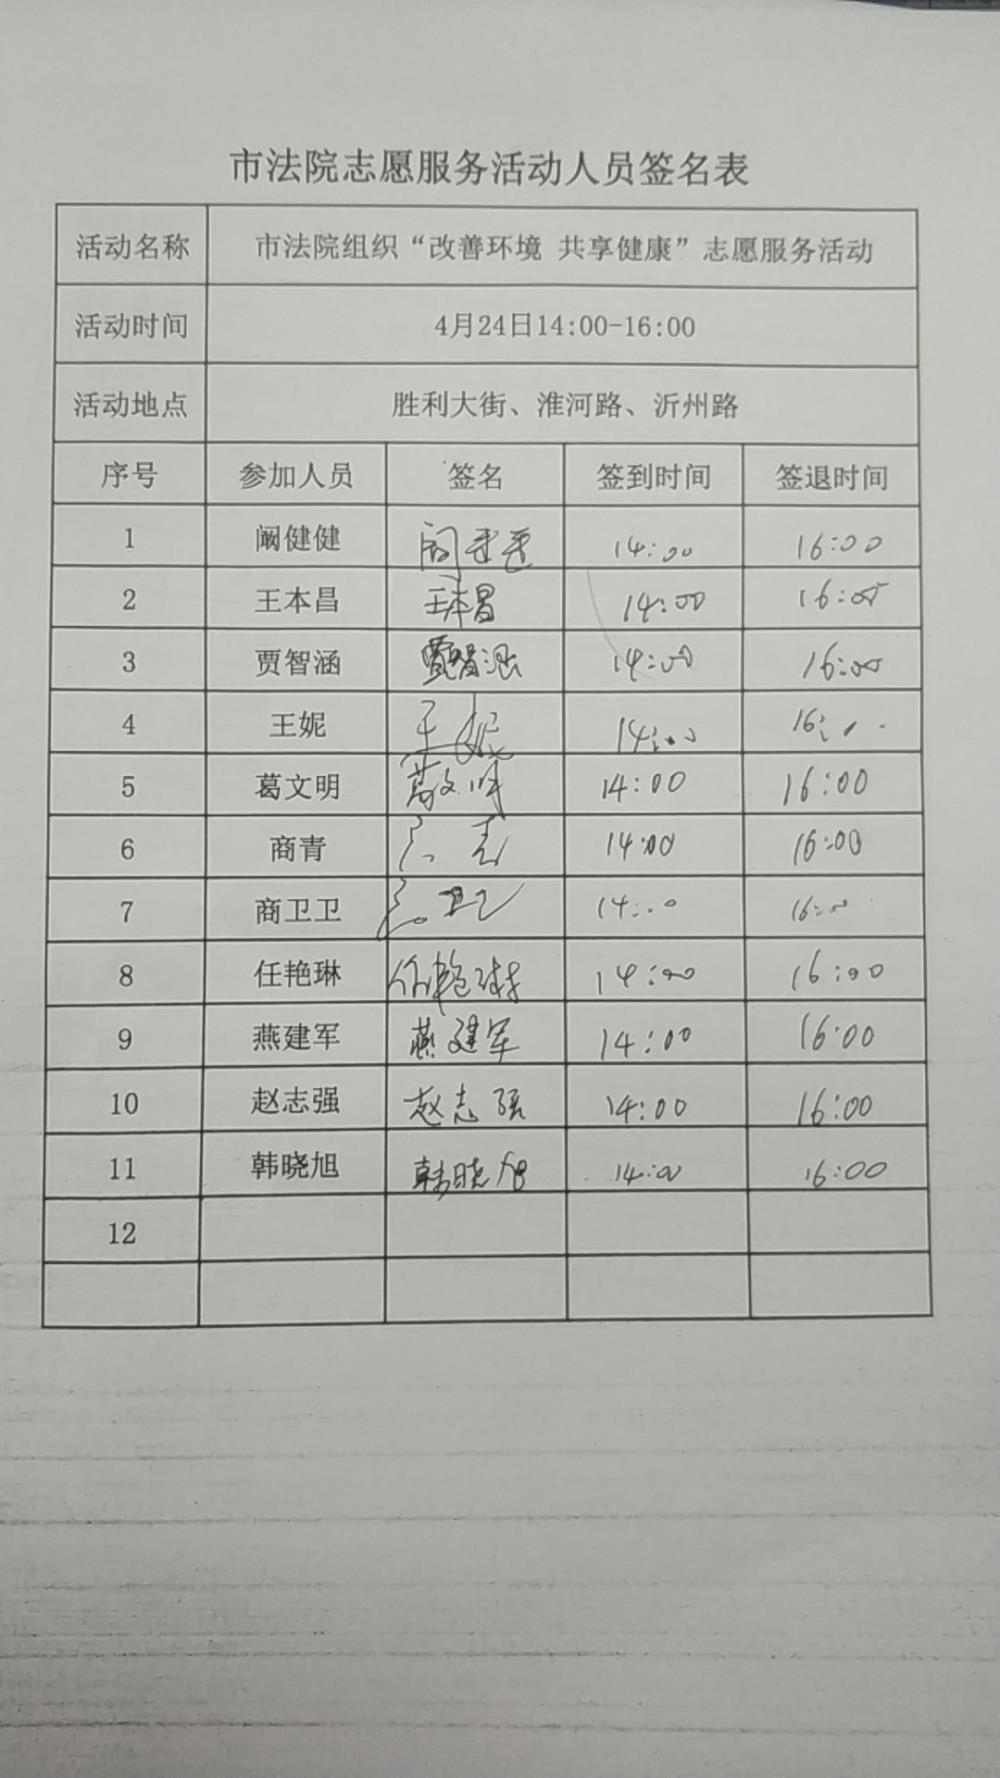 市法院志愿服务活动人员签名表
活动名称 市法院组织“改善环境 共享健康”志愿服务活动
活动时间 4月24日14:00-16:00
活动地点 胜利大街、淮河路、沂州路
序号 参加人员 签名 签到时间 签退时间
1 阚健健 14:00 16:00
2 王本昌 王本昌 14:00 16:00
3 贾智涵 贾智涵 14:00 16:00
4 王妮 王妮 14:00
5 葛文明 葛文明 14:00 16:00
6 商青 14:00 16:00
7 商卫卫 14:00 16:00
8 任艳琳 任艳琳 14:00 16:00
9 燕建军 燕建军 14:00 16:00
10 赵志强 赵志强 14:00 16:00
11 韩晓旭 韩晓旭 14:00 16:00
12